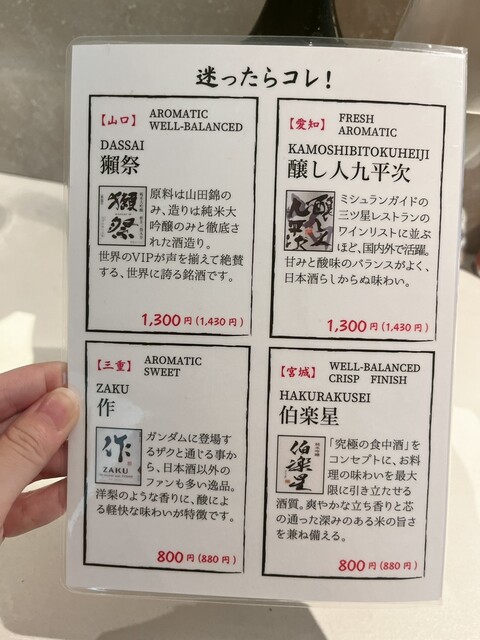 迷ったらコレ！
【山口】
AROMATIC
WELL-BALANCED
DASSAI
獺祭
獺祭
原料は山田錦の
み、造りは純米大
吟醸のみと徹底さ
れた酒造り。
世界のVIPが声を揃えて絶賛
する、世界に誇る銘酒です。
1,300円(1,430円)
【愛知】
FRESH
AROMATIC
KAMOSHIBITOKUHEIJI
醸し人九平次
醸し人
九平次
ミシュランガイドの
三ツ星レストランの
ワインリストに並ぶ
ほど、国内外で活躍。
甘みと酸味のバランスがよく、
日本酒らしからぬ味わい。
1,300円(1,430円)
【三重】
AROMATIC
SWEET
ZAKU
作
作
ZAKU
ガンダムに登場す
るザクと通じる事か
ら、日本酒以外の
ファンも多い逸品。
洋梨のような香りに、酸によ
る軽快な味わいが特徴です。
800円(880円)
【宮城】
WELL-BALANCED
CRISP FINISH
HAKURAKUSEI
伯楽星
伯楽星
「究極の食中酒」を
コンセプトに、お料
理の味わいを最大
限に引き立たせる
酒質。爽やかな立ち香りと芯
の通った深みのある米の旨さ
を兼ね備える。
800円(880円)